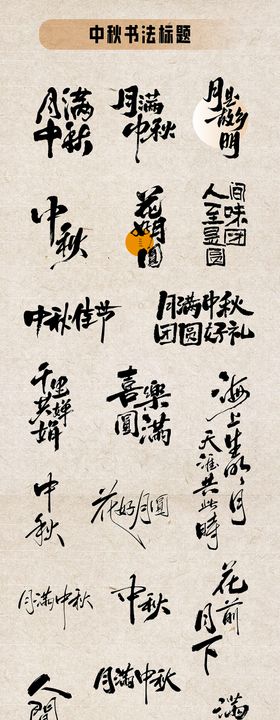 中秋书法标题
月满
中秋
月满
中秋
月是
故乡
明
中
秋
花好
月
圆
人间
至味
是团
圆
中秋佳节
月满中秋
团圆好礼
千里
共婵
娟
喜樂
圆满
海上生明月
天涯共此時
中
秋
花好月圆
月满中秋
中秋
花前
月下
月满中秋
人間
满